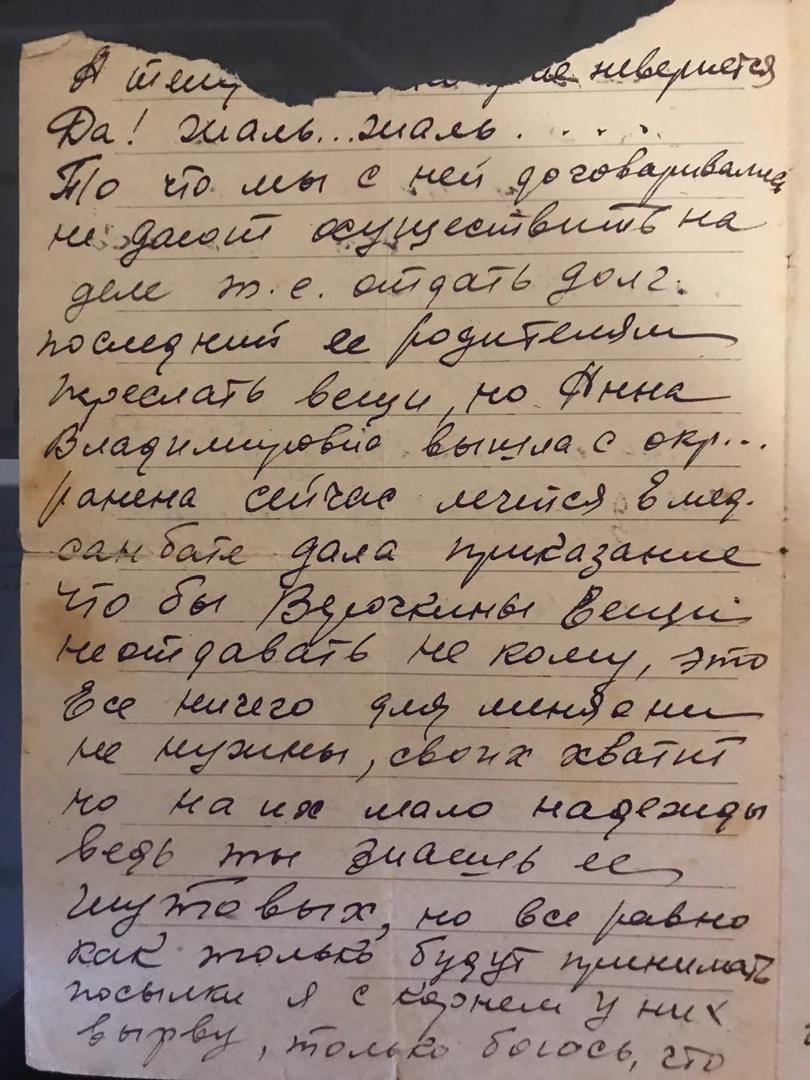 А тему невернется
Да! жаль...жаль.....
То что мы с ней договаривались
не дают осуществить на
деле т.е. отдать долг.
последний ее родителям
преслать вещи, но Анна
Владимировна вышла с окр...
ранена сейчас лечится в мед.
санбате дала приказание
что бы Верочкины вещи
неотдавать не кому, это
все ничего для меня они
не нужны, своих хватит
но на их мало надежды
ведь ты знаешь ее
шутовых, но все равно
как только будут принимать
посылки я с корнем у них
вырву, только боюсь, что